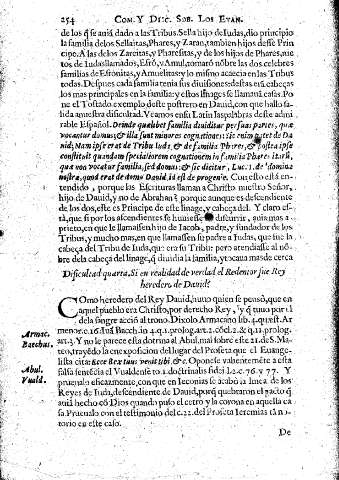 254 COM. Y DISC. SOB. LOS EVAN.
de los q̃ se aniã dado a las Tribus. Sella hijo de Iudas, dio principio
la familia delos Sellaitas, Phares, y Zaran, tambien hijos desse Prin
cipe. A las de los Zareitas, y Pharesitas, y de los hijos de Phares, nie-
tos de Iudas llamados, Esrõ, y Amul, tomarõ nõbre las dos celebres
familias de Esronitas, y Amuelitas: y lo mismo acaecia en las Tribus
todas. Despues cada familia tenia sus diuisiones: destas era cabeças
los mas principales en la familia: y estos linages se llamauã casas. Po
ne el Tostado exemplo deste postrero en Dauid, con que hallo sa-
lida a nuestra dificultad. Veamos en su Latin las palabras deste admi
rable Español. Deinde quælibet familia diuiditur per suas partes, quæ
vocantur domus, & illa sunt minores cognationes: Sic enim patet de Da
uid, Nam ipse erat de Tribu Iuda, & de familia Phares, & postea ipse
constituit quandam specialiorem cognationem in familia Phares.
quæ non vocatur familia, sed domus: & sic dicitur, Luc. 1. de domina
nostra, quod erat de domo Dauid id est de progenie. Con esto está en-
tendido, porque las Escrituras llaman a Christo nuestro Señor,
hijo de Dauid, y no de Abrahan: porque aunque es descendiente
de los dos, este es Principe de este linage, y cabeça del. Y claro es-
tà, que si por los ascendientes se huuiesse de discurrir, guia mas a-
prieto, en que le llamassen hijo de Iacob, padre, y fundador de los
Tribus, y mucho mas, en que llamassen su padre a Iudas, que fue la
cabeça del Tribu de Iuda, que era su Tribu: pero atendiasse al nõ-
bre dela cabeça del linage, q̃ diuidia la familia, y trayase mas de cerca
Dificultad quarta, Si en realidad de verdad el Redentor fue Rey
heredero de Dauid?
COmo heredero del Rey Dauid, huuo quien se pensò, que en
aquel pueblo era Christo, por derecho Rey, y q̃ tuuo par ti
de la sangre acciõ al trono. Dixolo Armacano lib. 4. quæst. Ar
menor. c. 16. Iuã Bacch. in 4. q. 1. prolog. art. 2. cõcl. 2. & q. 12. prolog.
art. 3. Y no le parece esta dotrina al Abul. mal sobre este 21. de S. Ma-
teo, trayẽdo la exposicion del lugar del Profeta que el Euange-
lista cita: Ecce Rex tuus venit tibi, &c. Opone valientemẽte a esta
falsa sentẽcia el Vualdense to. 1. doctrinalis fidei l. 2. c. 76. y 77. Y
prueualo eficazmente, con que en Ieconias se acabò la linea de los
Reyes de Iuda, descendiente de Dauid, porq̃ quebraron el pacto q̃
auia hecho cõ Dios quando puso el cetro y la corona en aquella ca
sa. Prueualo con el testimonio del c. 22. del Profeta Ieremias tã no-
torio en este caso.
Armac.
Bacchus.
Abul.
Vuald.
De